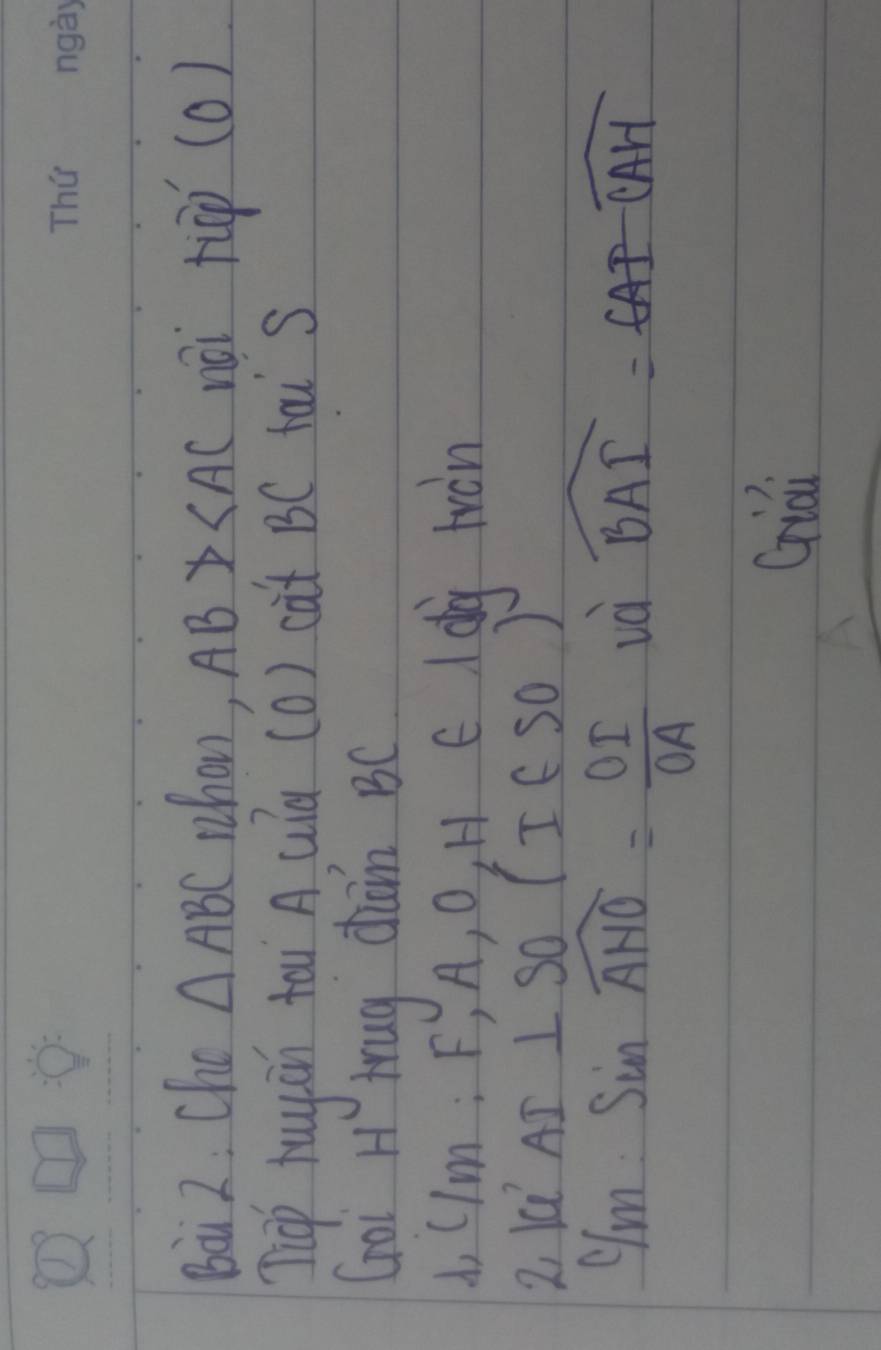 Thứ ngày
Bài 2: Cho △ABC nhọn, AB < AC nội tiếp (O).
Tiếp tuyến tại A của (O) cắt BC tại S
Gọi H trug điểm BC.
1, C/m: F, A, O, H ∈ 1 đg tròn
2, kẻ AI ⊥ SO (I ∈ SO)
C/m. Sin AHO = OI/OA và BAI = CAI CAH
Giải
A